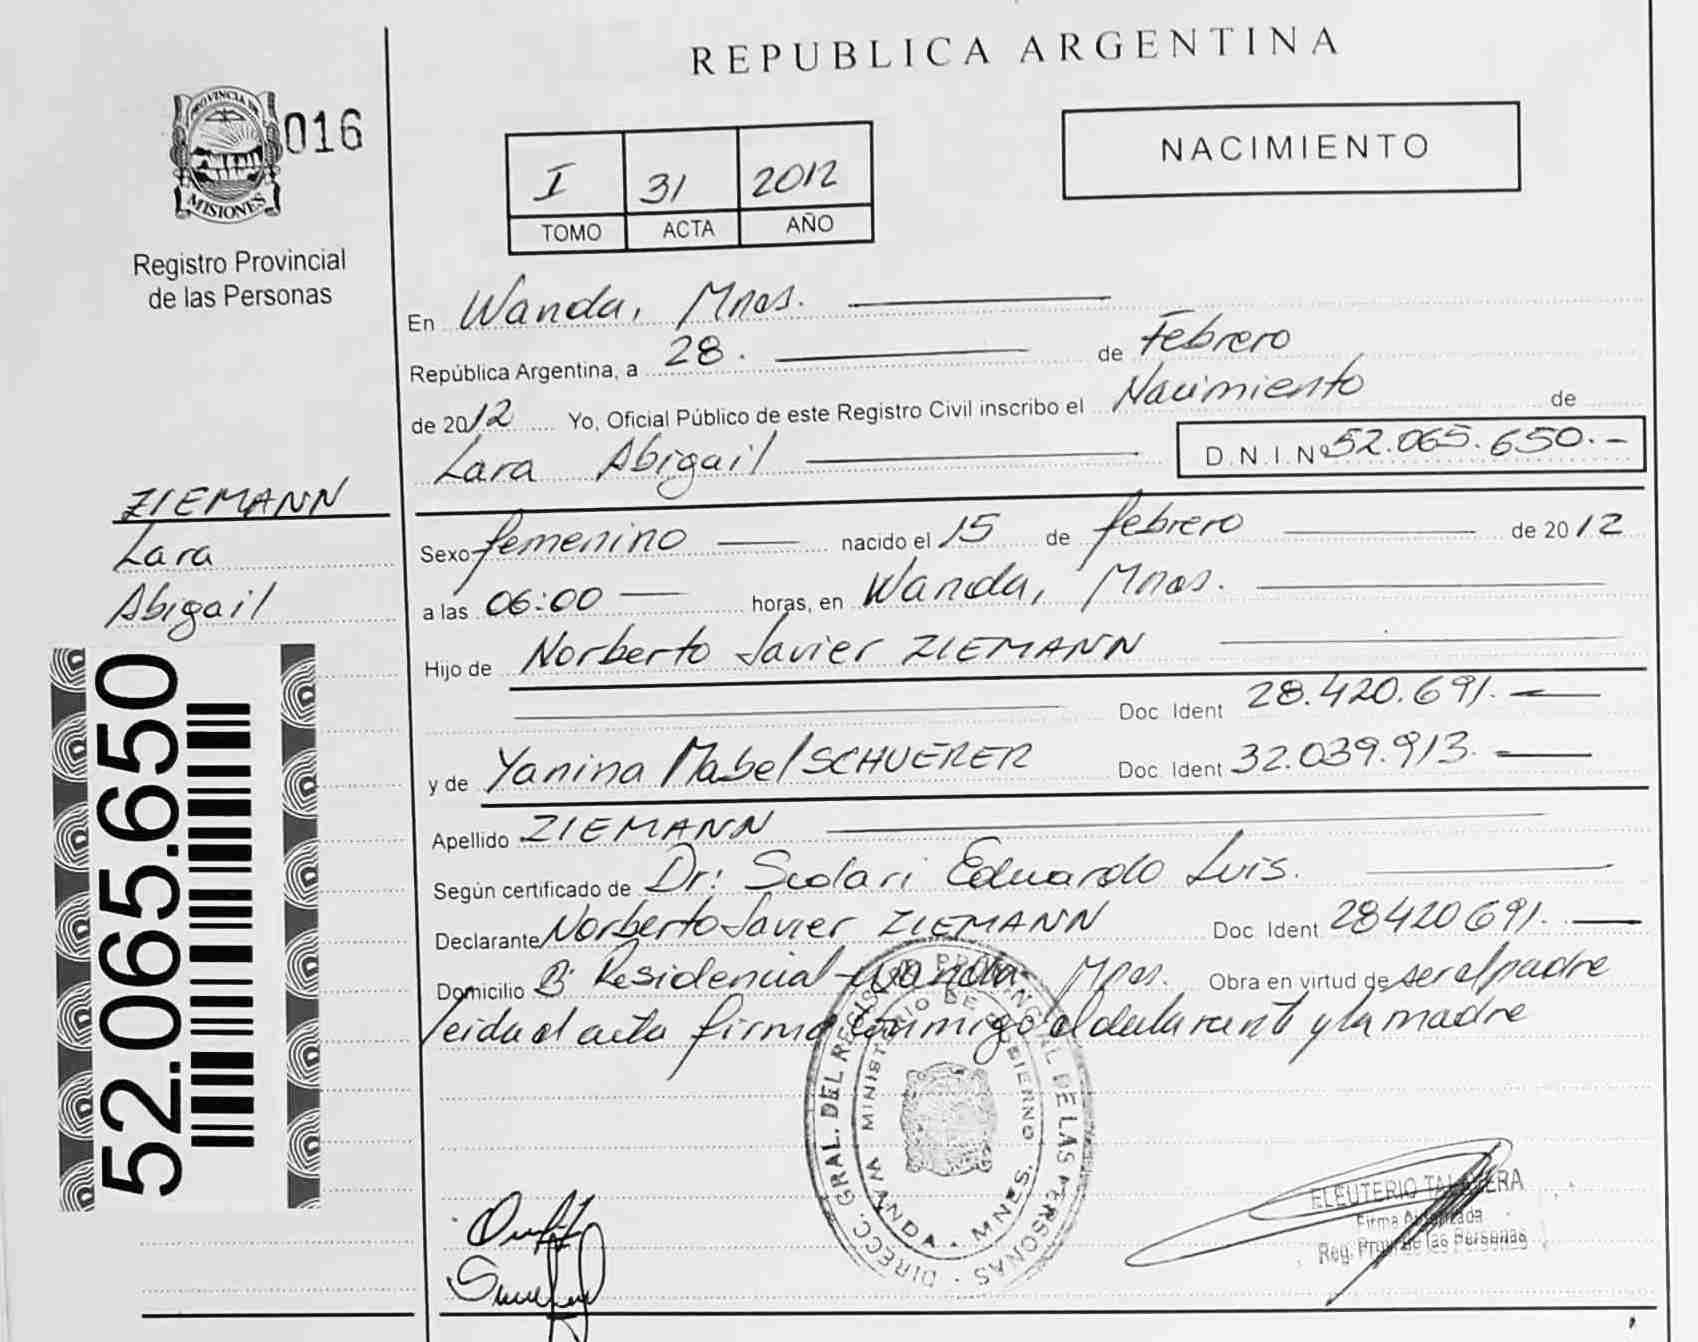 REPUBLICA ARGENTINA
PROVINCIA DE
MISIONES
016
Registro Provincial
de las Personas
I 31 2012
TOMO ACTA AÑO
NACIMIENTO
En Wanda, Mnes.
República Argentina, a 28. de Febrero
de 2012 Yo, Oficial Público de este Registro Civil inscribo el Nacimiento de
Lara Abigail D.N.I.Nº 52.065.650.-
ZIEMANN
Lara
Abigail
52.065.650
Sexo femenino nacido el 15 de febrero de 2012
a las 06:00 horas, en Wanda, Mnes.
Hijo de Norberto Javier ZIEMANN
Doc. Ident 28.420.691.
y de Yanina Mabel SCHUERER Doc. Ident 32.039.913.
Apellido ZIEMANN
Según certificado de Dr: Scolari Eduardo Luis.
Declarante Norberto Javier ZIEMANN Doc Ident 28420691.
Domicilio Bº Residencial Wanda Mnes. Obra en virtud de ser el padre
leida el acta firma conmigo el declarante y la madre
DIRECC. GRAL. DEL REGISTRO PROVINCIAL DE LAS PERSONAS
MINISTERIO DE GOBIERNO
WANDA - MNES.
ELEUTERIO TALAVERA
Firma Autorizada
Reg. Prov. de las Personas